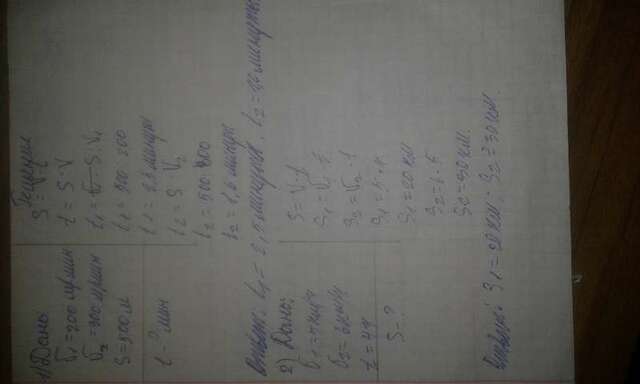 1) Дано
Решение
V1 = 200 м/мин
V2 = 300 м/мин
S = 500 м
t - ? мин
S =
t = S : V
t1 = S : V1
t1 = 500 : 200
t1 = 2,5 минут
t2 = S : V2
t2 = 500 : 300
t2 = 1,6 минут
Ответ: t1 = 2,5 минут, t2 = минуты.
2) Дано:
V1 = 5 км/ч
V2 = 6 км/ч
t = 4ч
S - ?
S = V · t
S1 = V1 · t
S2 = V2 · t
S1 = 5 · 4
S1 = 20 км
S2 = 6 · 5
S2 = 30 км.
Ответ: S1 = 20 км; S2 = 30 км.